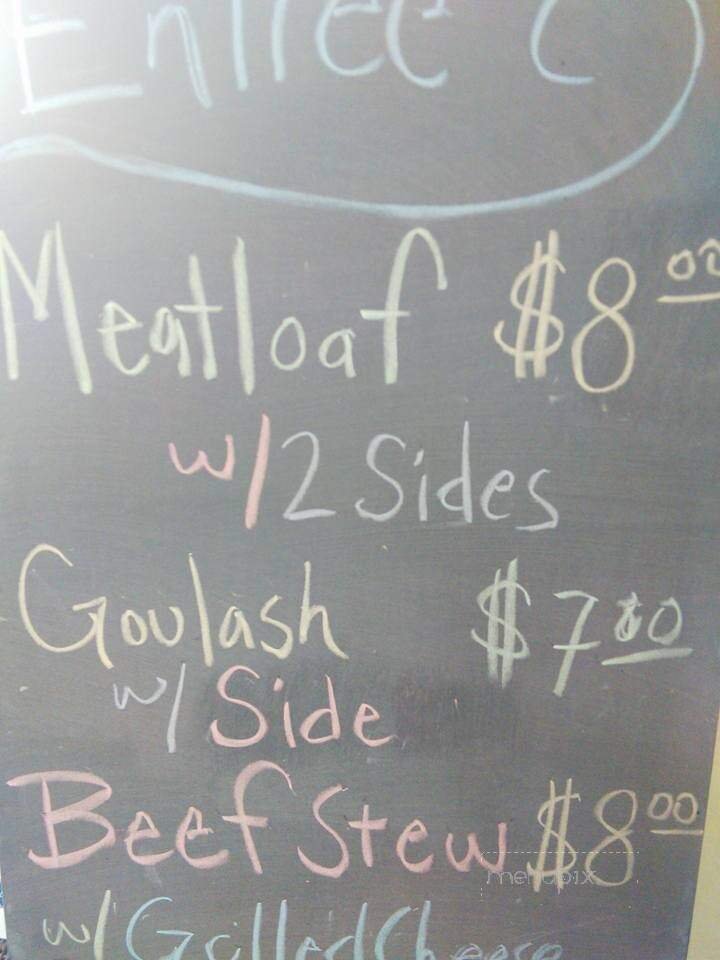 Entree
Meatloaf $8 00
w/2 Sides
Goulash $7 00
w/ Side
Beef Stew $8 00
menupix
w/ Grilled Cheese